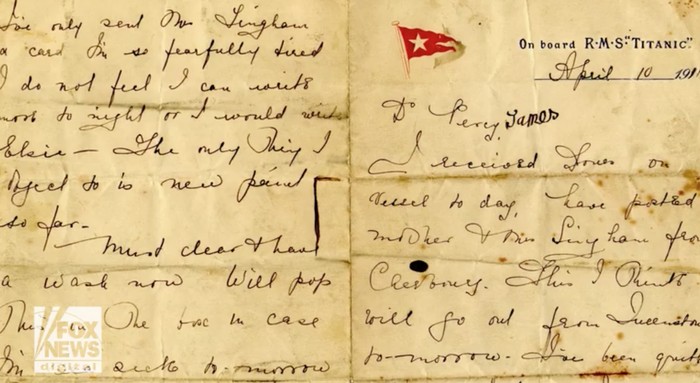 I've only sent Mrs Singham
a card I'm so fearfully tired
I do not feel I can write
more to night or I would write
Elsie – The only Thing I
object to is new paint
so far –
Must clear & have
a wash now Will pop
This in The box in case
I'm sick to-morrow
FOX
NEWS
digital
On board R·M·S· "TITANIC."
April 10 191
Dr Percy James
I received Yours on
Vessel to day, have posted
mother & Mrs Singham from
Cherbourg. This I Think
will go out from Queenstown
to-morrow. I've been quite